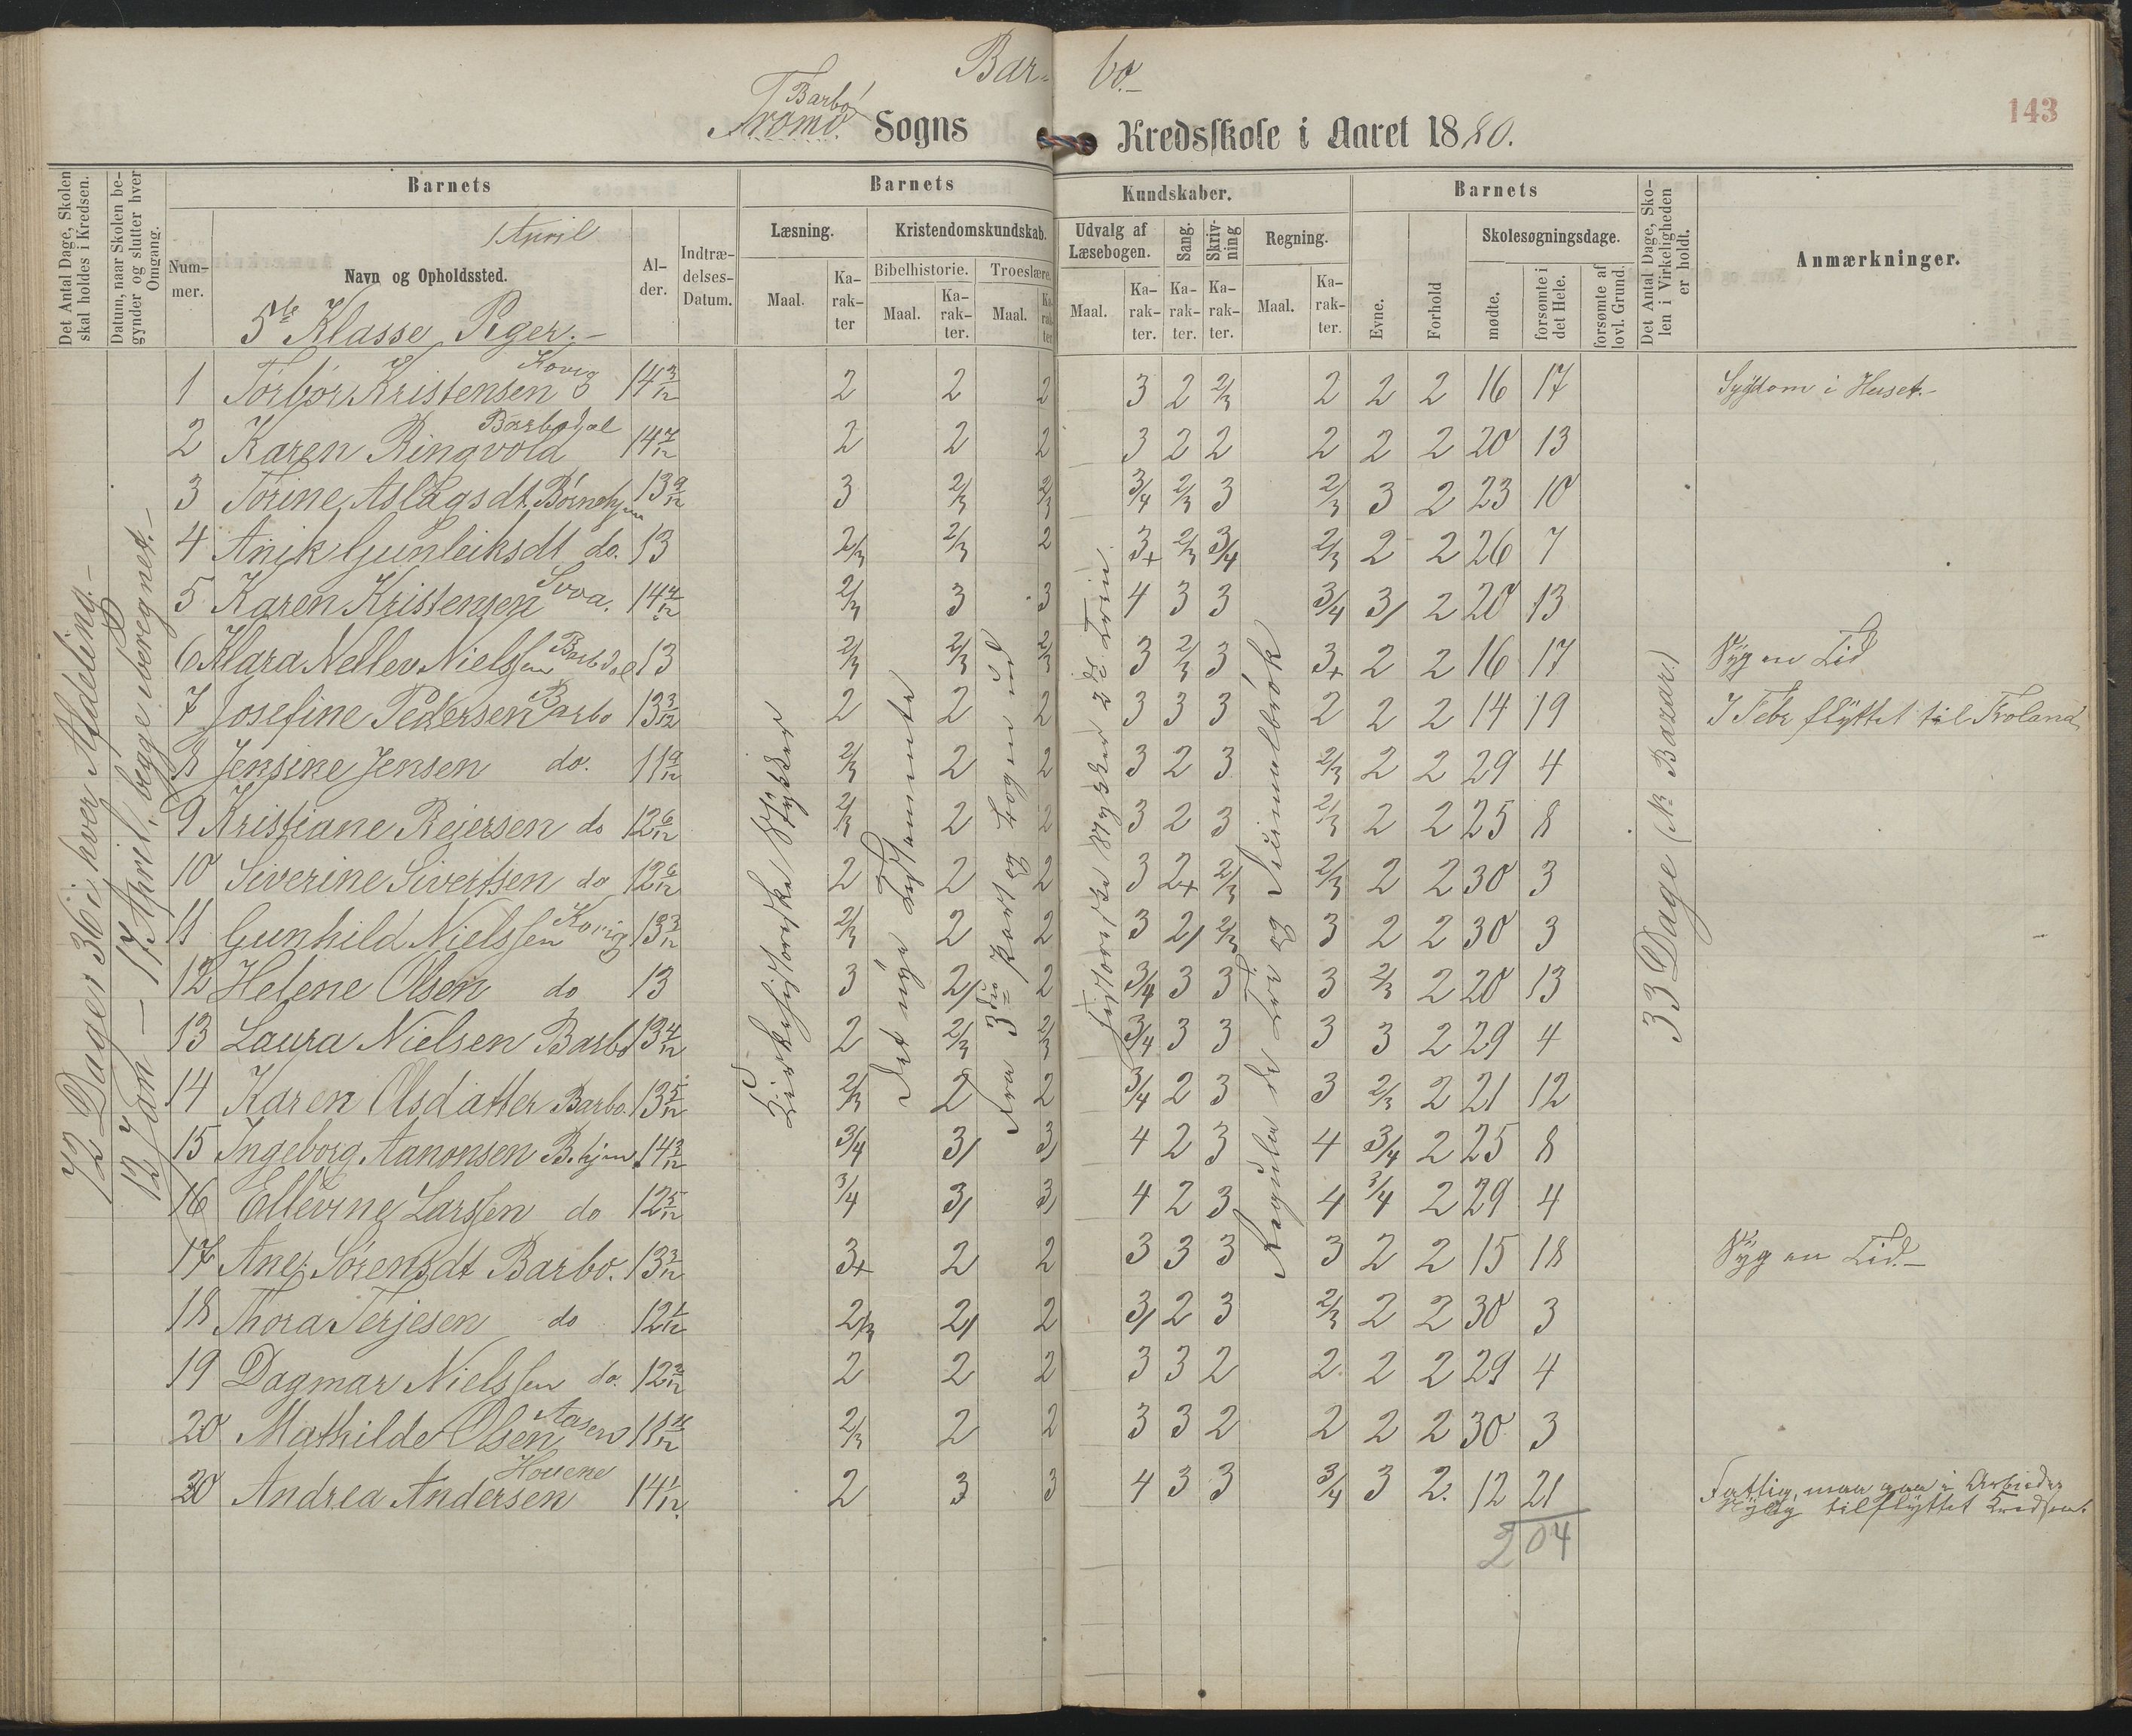 Bar- bo.-
143
Barbo
Tromø. Sogns Kredsskole i Aaret 1880.
Det Antal Dage, Skolen skal holdes i Kredsen.
Datum, naar Skolen begynder og slutter hver Omgang.
Barnets
Nummer.
1 April
Navn og Opholdssted.
Alder.
Indtrædelses-Datum.
Barnets
Læsning.
Maal.
Karakter
Kristendomskundskab.
Bibelhistorie.
Maal.
Karakter.
Troeslære.
Maal.
Karakter
Kundskaber.
Udvalg af Læsebogen.
Maal.
Karakter.
Sang.
Karakter.
Skrivning
Karakter.
Regning.
Maal.
Karakter.
Barnets
Evne.
Forhold
Skolesøgningsdage.
mødte.
forsømte i det Hele.
forsømte af lovl. Grund.
Det Antal Dage, Skolen i Virkeligheden er holdt.
Anmærkninger.
5te Klasse Piger.-
72 Dage; 36 i hver Afdeling.-
12 Jan - 17 April, begge iberegnet.-
Kirkehistoriske Stykker
Det nye Testamente
Fra 3die Part og Bogen ud
Historiske Stykker 2det Trin
Regula de Tri og Decimalbrök
33 Dage (÷ Bazar)
1 Torbor Kristensen 14 3/12 2 2 2 3 2 2/3 2 2 2 16 17 Sygdom i Huset.-
2 Karen Ringvold Barbodal 14 7/12 2 2 2 3 2 2 2 2 2 20 13
3 Torine Aslagsdt. Börnehjem 13 9/12 3 2/3 2/3 3/4 2/3 3 2/3 3 2 23 10
4 Anik Gunleiksdt do. 13 2/3 2/3 2 3+ 2/3 3/4 2/3 2 2 26 7
5 Karen Kristensen 14 4/12 2/3 3 3 4 3 3 3/4 3/ 2 20 13
6 Klara Nellev Nielssen Barbdal 13 2/3 2/3 2/3 3 2/3 3 3+ 2 2 16 17 Syg en Tid
7 Josefine Pedersen Barbo 13 3/12 2 2 2 3 3 3 2 2 2 14 19 I Febr flyttet til Froland
8 Jensine Jensen do. 11 9/12 2/3 2 2 3 2 3 2/3 2 2 29 4
9 Kristiane Reiersen do 12 6/12 2/3 2 2 3 2 3 2/3 2 2 25 8
10 Siverine Sivertsen do 12 6/12 2 2 2 3 2+ 2/3 2/3 2 2 30 3
11 Gunhild Nielssen 13 3/12 2/3 2 2 3 2/ 2/3 3 2 2 30 3
12 Helene Olsen do 13 3 2/ 2 3/4 3 3 3 2/3 2 20 13
13 Laura Nielsen Barbo 13 4/12 2 2/3 2/3 3/4 3 3 3 3 2 29 4
14 Karen Olsdatter Barbo. 13 5/12 2/3 2 2 3/4 2 3 3 2/3 2 21 12
15 Ingeborg Aanonsen B.hjem 14 3/12 3/4 3/ 3/ 4 2 3 4 3/4 2 25 8
16 Ellevine Larssen do 12 5/12 3/4 3/ 3/ 4 2 3 4 3/4 2 29 4
17 Ane Sørensdt Barbo. 13 3/12 3+ 2 2 3 3 3 3 2 2 15 18 Syg en Tid.-
18 Thora Terjesen do 12 1/12 2/3 2/ 2 3/ 2 3 2/3 2 2 30 3
19 Dagmar Nielssen do. 12 2/12 2 2 2 3 3 2 2 2 2 29 4
20 Mathilde Olsen Aasen 2/3 2 2 3 3 2 2 2 2 30 3
20 Andrea Andersen Houene 14 1/12 2 3 3 4 3 3 3/4 3 2. 12 21 Fattig, maa gaa i Arbeide,
Nylig tilflyttet Kredsen.
204